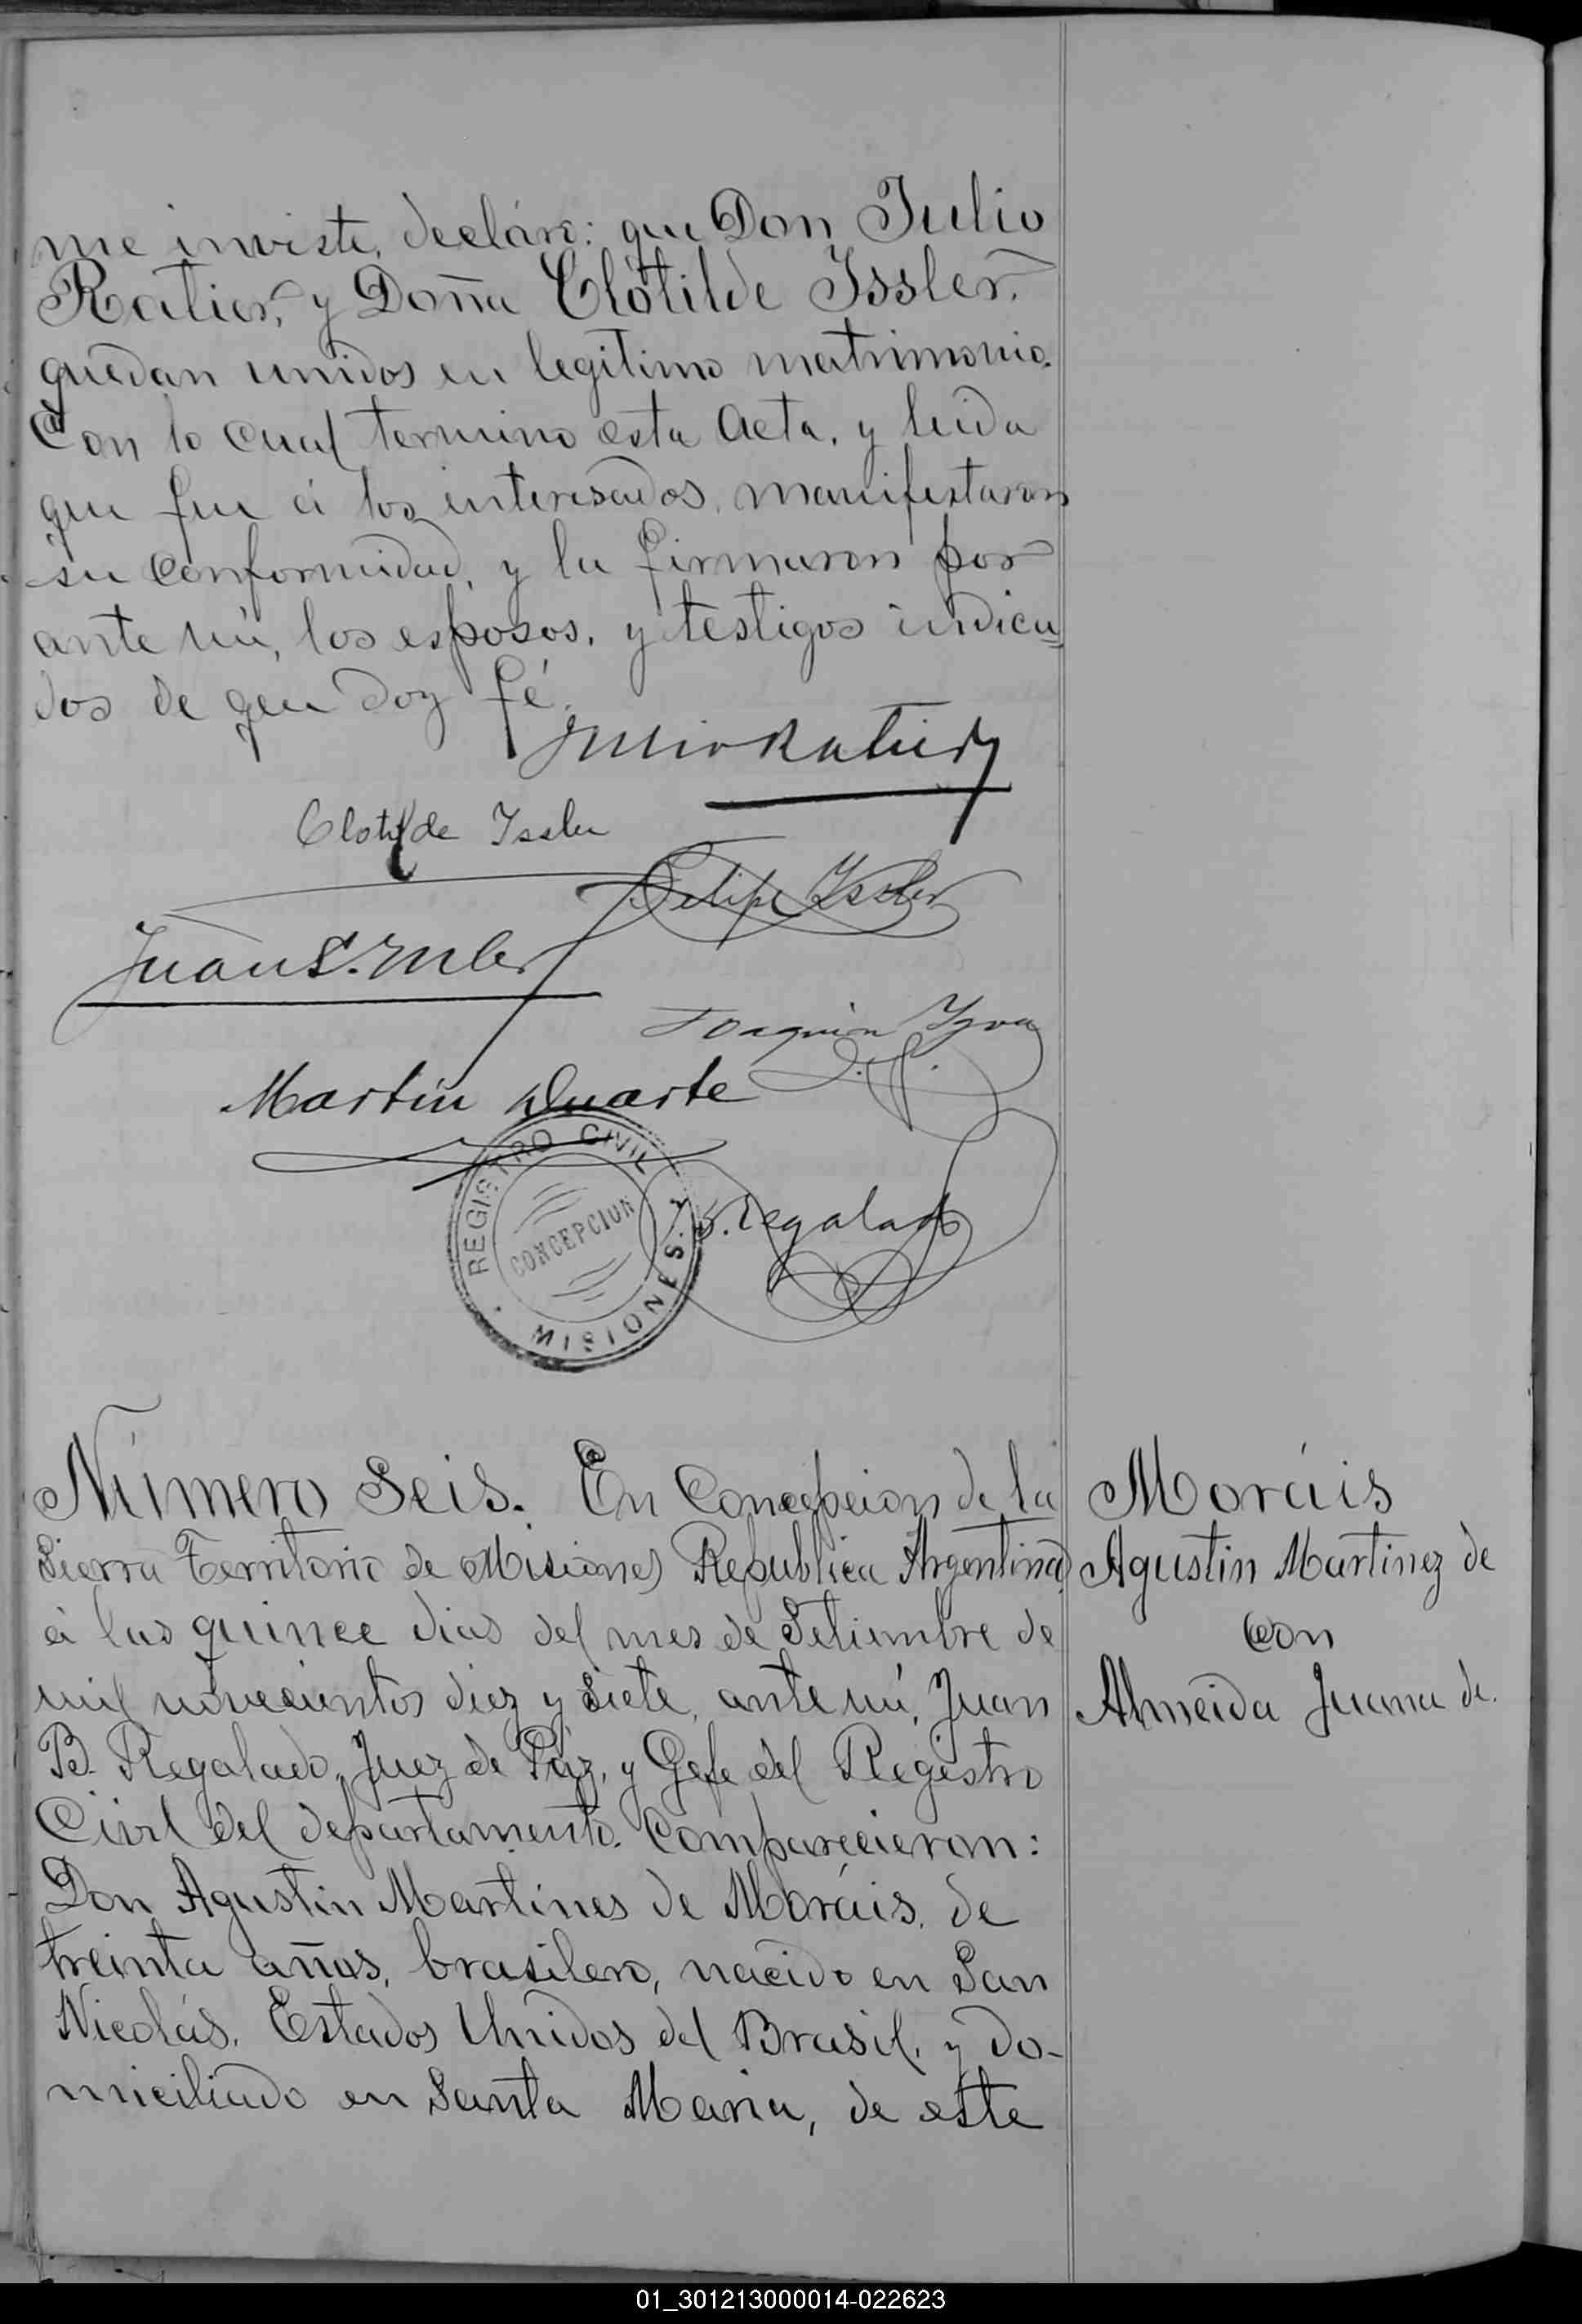 me inviste, decláro: que Don Julio
Ratier, y Doña Clotilde Issler,
quedan unidos en legitimo matrimonio.
Con lo cual termino esta acta, y leida
que fue á los interesados, manifestaron
su conformidad, y la firmaron por
ante mi, los esposos, y testigos indica=
dos de que doy fé.
Julio Ratier
Clotilde Issler
Felipe Issler
Juan
Joaquin
Martin Duarte
REGISTRO CIVIL
CONCEPCION
MISIONES
B. Regalado
Número Seis. En Concepcion de la
Sierra Territorio de Misiones Republica Argentina,
á los quince dias del mes de Setiembre de
mil novecientos diez y siete, ante mi, Juan
B. Regalado, Juez de Páz, y Gefe del Registro
Civil del departamento. Comparecieron:
Don Agustin Martines de Moráis, de
treinta años, brasilero, nacido en San
Nicolás, Estados Unidos del Brasil, y do-
miciliado en Santa Maria, de este
Moráis
Agustin Martinez de
Con
Almeida Juana de.
01_301213000014-022623